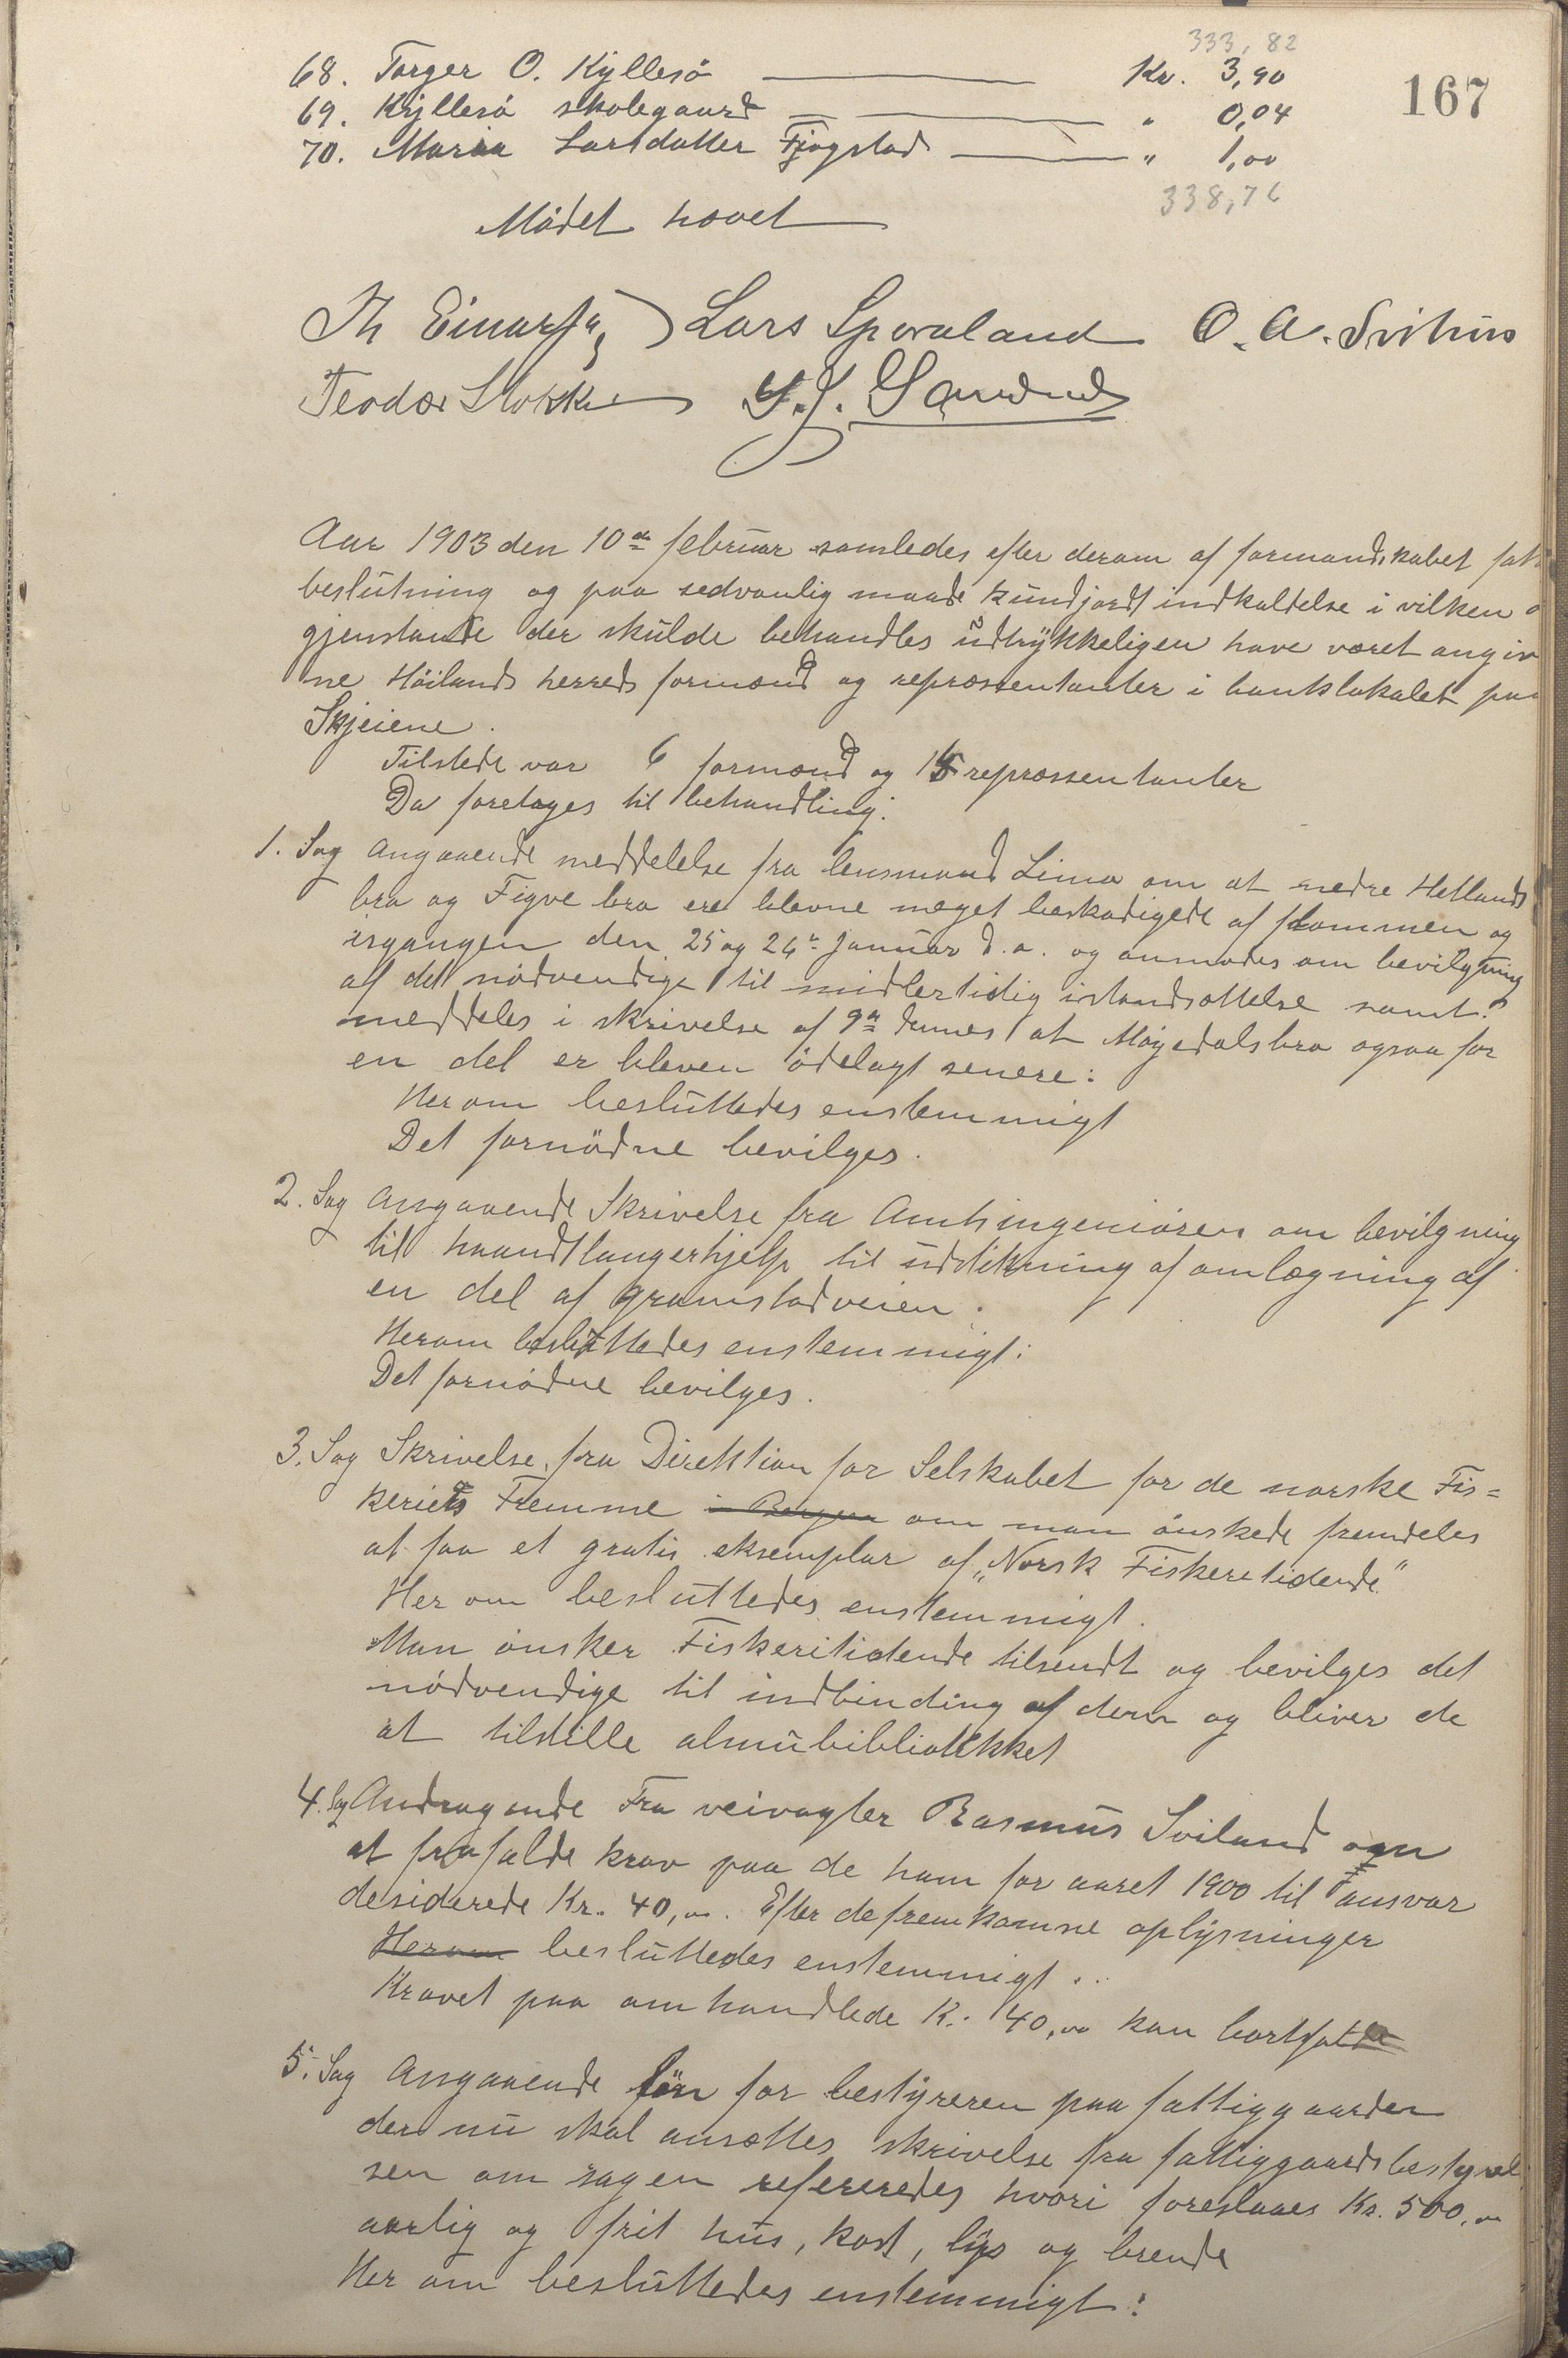 333,82
167
68. Torger O. Kyllesö Kr. 3,90
69. Kyllesö skolegaard " 0,04
70. Maria Larsdatter Fjogstad " 1,00
338,76
Mödet hævet
Th Lars Sporaland O. A. Svihus
Teodor Stokke
Aar 1903 den 10de februar samledes efter derom af formandskabet fat
beslutning og paa sedvanlig maade kundjordt indkaldelse i vilken
gjenstande der skulde behandles udtrykkeligen have været angiv
ne Höilands herreds formænd og repræssentanter i banklokalet paa
Skjeiene.
Tilstede var 6 formænd og repræssentanter
Da foretages til behandling:
1. Sag Angaaende meddelelse fra lensmand Lima om at nedre Hetlands
bro og Figve bro ere blevne meget beskadigede af flommen og
isgangen den 25 og 26de Januar d.a. og anmodes om bevilgning
af det nödvendige til midlertidig istandsættelse samt
meddeles i skrivelse af 9de dennes at Höyedalsbro ogsaa for
en del er bleven ödelagt senere:
Herom besluttedes enstemmigt
Det fornödne bevilges.
2. Sag Angaaende Skrivelse fra Amtsingeniören om bevilgning
til haandtlangerhjelp til udstikning af omlægning af
en del af Gramstadveien.
Herom besluttedes enstemmigt:
Det fornödne bevilges.
3. Sag Skrivelse fra Direktion for Selskabet for de norske Fis=
keriets Fremme i Bergen om man önskede fremdeles
at faa et gratis eksemplar af "Norsk Fiskeretidende"
Her om besluttedes enstemmigt.
Man önsker Fiskeritidende tilsendt og bevilges det
nödvendige til indbinding af dem og bliver de
at tilstille almubibliotekket
4. Sag Andragende Fra veivogter Rasmus Sviland om
at frafalde krav paa de ham for aaret 1900 til ansvar
desiderede Kr. 40,00. Efter de fremkomne oplysninger
Herom besluttedes enstemmigt:
Kravet paa omhandlede Kr. 40,00 kan bortfalde
5. Sag Angaaende lön for bestyreren paa fattiggaarden
der nu skal ansættes skrivelse fra fattiggaardsbestyrel
sen om sagen refereredes hvori foreslaaes Kr. 500,00
aarlig og frit hus, kost, lys og brende
Her om besluttedes enstemmigt: